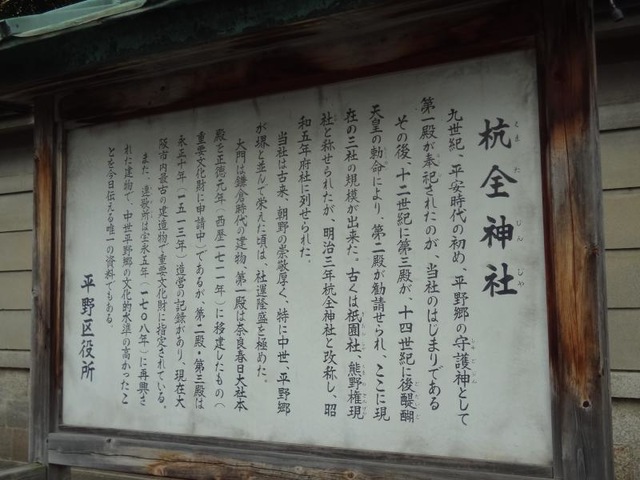 杭全神社
くまたじんしゃ
九世紀、平安時代の初め、平野郷の守護神として
第一殿が奉祀されたのが、当社のはじまりである
その後、十二世紀に第三殿が、十四世紀に後醍醐
天皇の勅命により、第二殿が勧請せられ、ここに現
在の三社の規模が出来た。古くは祇園社、熊野権現
社と称せられたが、明治三年杭全神社と改称し、昭
和五年府社に列せられた。
当社は古来、朝野の崇敬厚く、特に中世、平野郷
が堺と並んで栄えた頃は、社運隆盛を極めた。
大門は鎌倉時代の建物、第一殿は奈良春日大社本
殿を正徳元年(西暦一七一一年)に移建したもの(
重要文化財に申請中)であるが、第二殿・第三殿は
永正十年(一五一三年)造営の記録があり、現在大
阪市内最古の建造物で重要文化財に指定されている。
また、連歌所は宝永五年(一七〇八年)に再興さ
れた建物で、中世平野郷の文化的水準の高かったこ
とを今日伝える唯一の資料でもある。
平野区役所